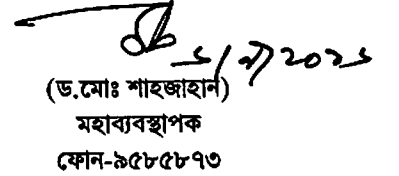 (ড.মোঃ শাহজাহান)
মহাব্যবস্থাপক
ফোন-৯৫৮৫৮৭৩